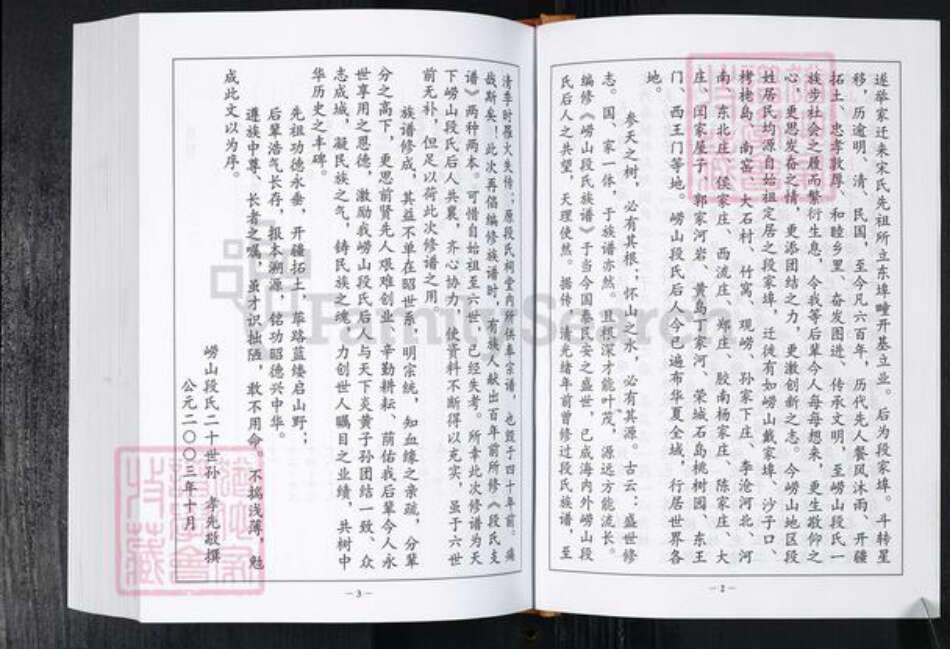 遂举家迁来宋氏先祖所立东埠疃开基立业。后为段家埠。斗转星
移，历逾明、清、民国，至今凡六百年，历代先人餐风沐雨、开疆
拓土、忠孝敦厚、和睦乡里、奋发图进、传承文明，至崂山段氏一
族步社会之履而繁衍生息，令我等后辈今人每每想来，更生敬仰之
心，更思发奋之情，更添团结之力，更激创新之志。今崂山地区段
姓居民均源自始祖定居之段家埠，迁徙有如崂山戴家埠、沙子口、
栲栳岛、南窑、大石村、竹窝、观崂、孙家下庄、李沧河北、河
南、东北庄、侯家庄、西流庄、郑庄、胶南杨家庄、陈家庄、大
庄、闫家屋子、郭家河岩、黄岛丁家河、荣城石岛桃树园、东王
门、西王门等地。崂山段氏后人今已遍布华夏全域，行居世界各
地。
参天之树，必有其根；怀山之水，必有其源。古云：盛世修
志。国、家一体，于族谱亦然。且根深才能叶茂，源远方能流长。
编修《崂山段氏族谱》于当今国泰民安之盛世，已成海内外崂山段
氏后人之共望，天理使然。据传，清光绪年前曾修过段氏族谱，至
－2－
清季时罹火失传，原段氏祠堂内所供奉宗谱，也毁于四十年前。痛
哉斯矣！此次再倡编修族谱时，有族人献出百年前所修《段氏支
谱》两种两本。可惜自始祖至六世，已经失考。所幸此次修谱为天
下崂山段氏后人共襄，齐心协力，使资料不断得以充实，虽于六世
前无补，但足以荷此次修谱之用。
族谱修成，其益不单在昭世系，明宗统，知血缘之亲疏，分辈
分之高下，更思前贤先人艰难创业、辛勤耕耘、荫佑我后辈今人永
世享用之恩德，激励我崂山段氏后人与天下炎黄子孙团结一致、众
志成城，凝民族之气，铸民族之魂，力创世人瞩目之业绩，共树中
华历史之丰碑。
先祖功德永垂，开疆拓土，荜路蓝缕启山野；
后辈浩气长存，报本溯源，铭功昭德兴中华。
遵族中尊、长者之嘱，虽才识拙陋，敢不用命。不揣浅薄，勉
成此文以为序。
崂山段氏二十世孙 孝先敬撰
公元二〇〇三年十月
－3－
FamilySearch